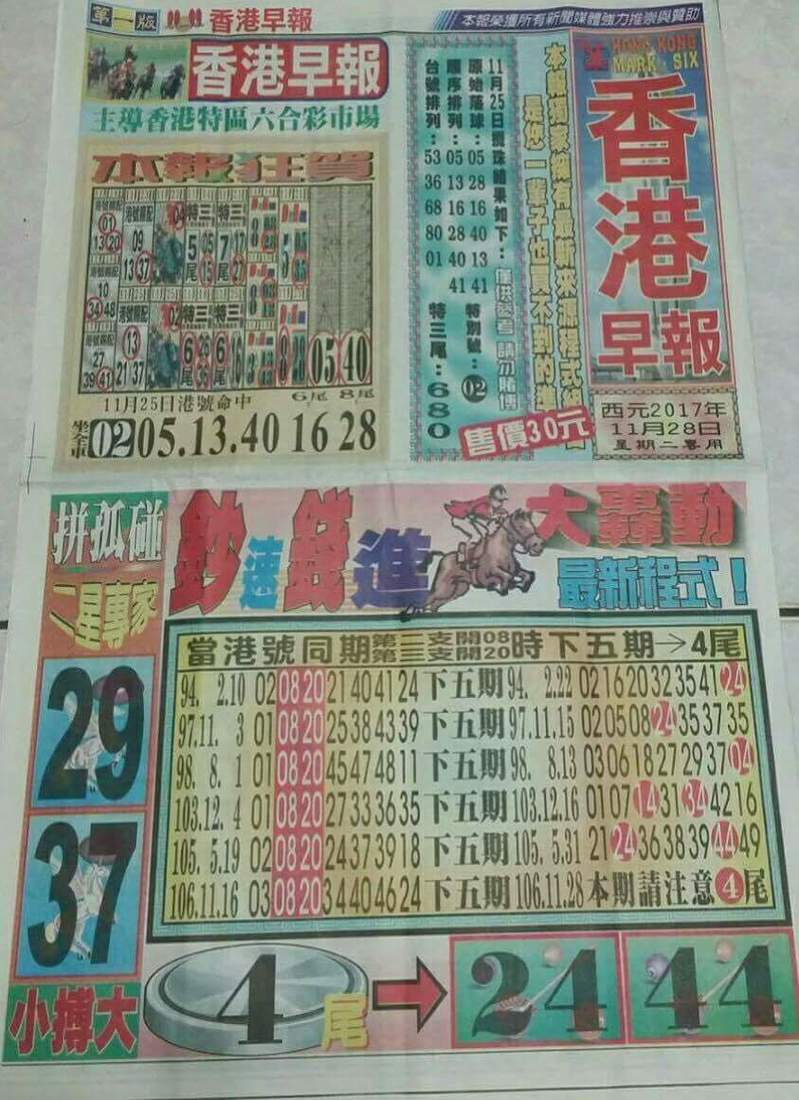 第一版
香港早報
本報榮獲所有新聞媒體強力推崇與贊助
香港早報
主導香港特區六合彩市場
本報狂賀
11月25日港號命中
6尾 8尾
坐全車 02 05.13.40 16 28
05 40
11月25日攪珠結果如下：僅供參考 請勿賭博
原始落球：05 28 16 40 13 41 特別號：02
順序排列：05 13 16 28 40 41
台號排列：53 36 68 80 01 特三尾：680
本報獨家擁有最新來源程式
是您一輩子也買不到的準
售價30元
HONG KONG
MARK SIX
香港早報
西元2017年
11月28日
星期二專用
拼孤碰
二星專家
29
37
小搏大
鈔速錢進
大轟動
最新程式！
當港號同期第二支開08第三支開20時下五期→4尾
94. 2.10 02 08 20 21 40 41 24 下五期 94. 2.22 02 16 20 32 35 41 24
97.11. 3 01 08 20 25 38 43 39 下五期 97.11.15 02 05 08 24 35 37 35
98. 8. 1 01 08 20 45 47 48 11 下五期 98. 8.13 03 06 18 27 29 37 04
103.12. 4 01 08 20 27 33 36 35 下五期 103.12.16 01 07 14 31 34 42 16
105. 5.19 02 08 20 24 37 39 18 下五期 105. 5.31 21 24 36 38 39 44 49
106.11.16 03 08 20 34 40 46 24 下五期 106.11.28 本期請注意4尾
4尾 → 24 44